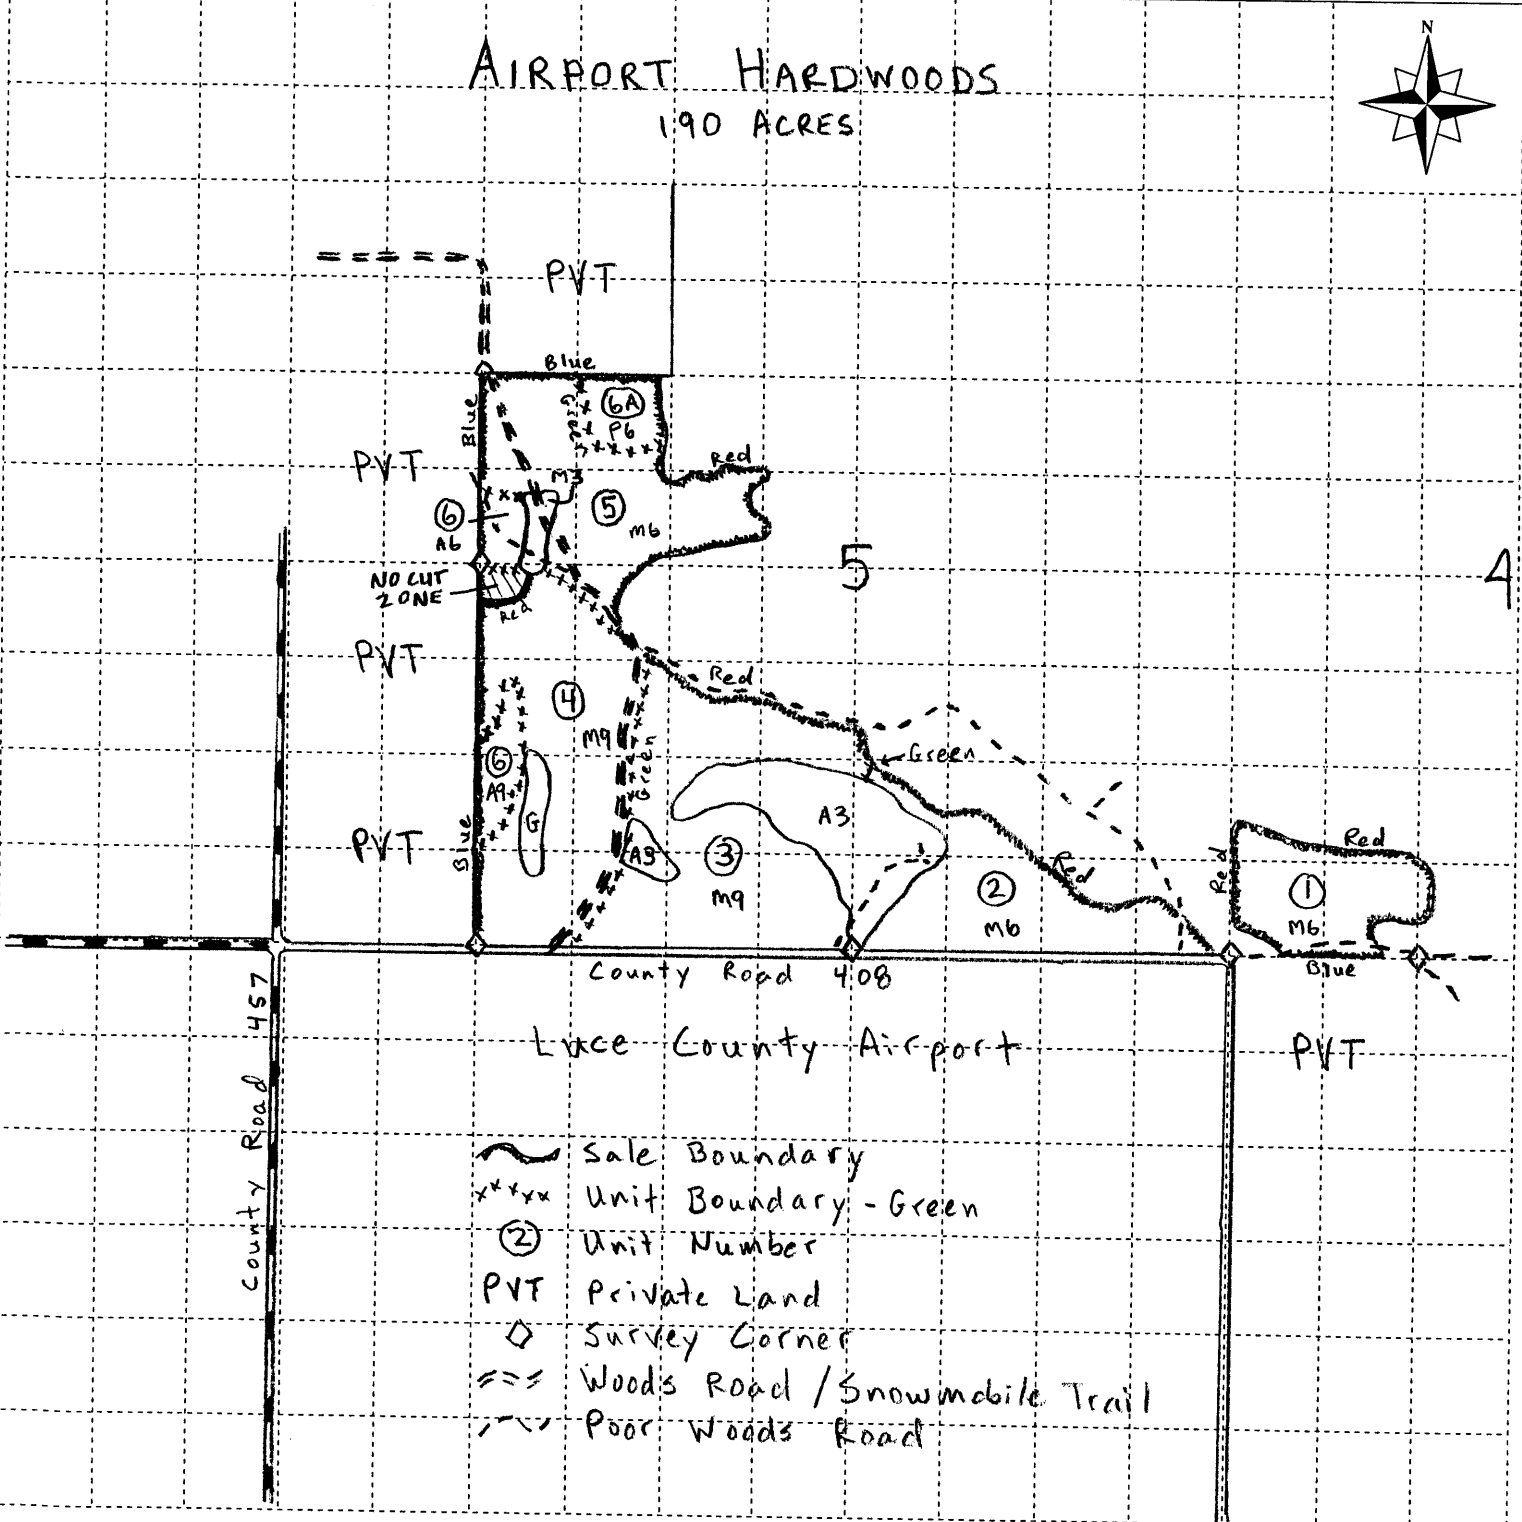 AIRPORT HARDWOODS
190 ACRES
N
PVT
Blue
Blue
Green
6A
P6
PVT
Red
M3
6
A6
5
M6
5
4
NO CUT
ZONE
Red
PVT
Red
4
M9
Green
Green
6
A9
G
A3
A3
3
M9
PVT
Blue
Red
2
M6
Red
Red
1
M6
Blue
County Road 408
County Road 457
Luce County Airport
PVT
Sale Boundary
Unit Boundary - Green
2 Unit Number
PVT Private Land
Survey Corner
Woods Road / Snowmobile Trail
Poor Woods Road